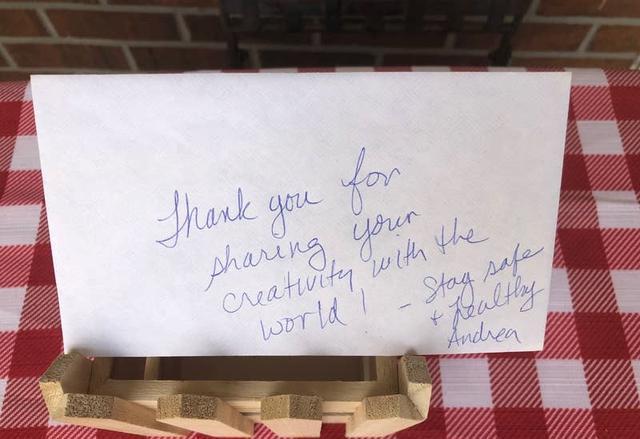 Thank you for
sharing your
creativity with the
world! - Stay safe
+ healthy
Andrea